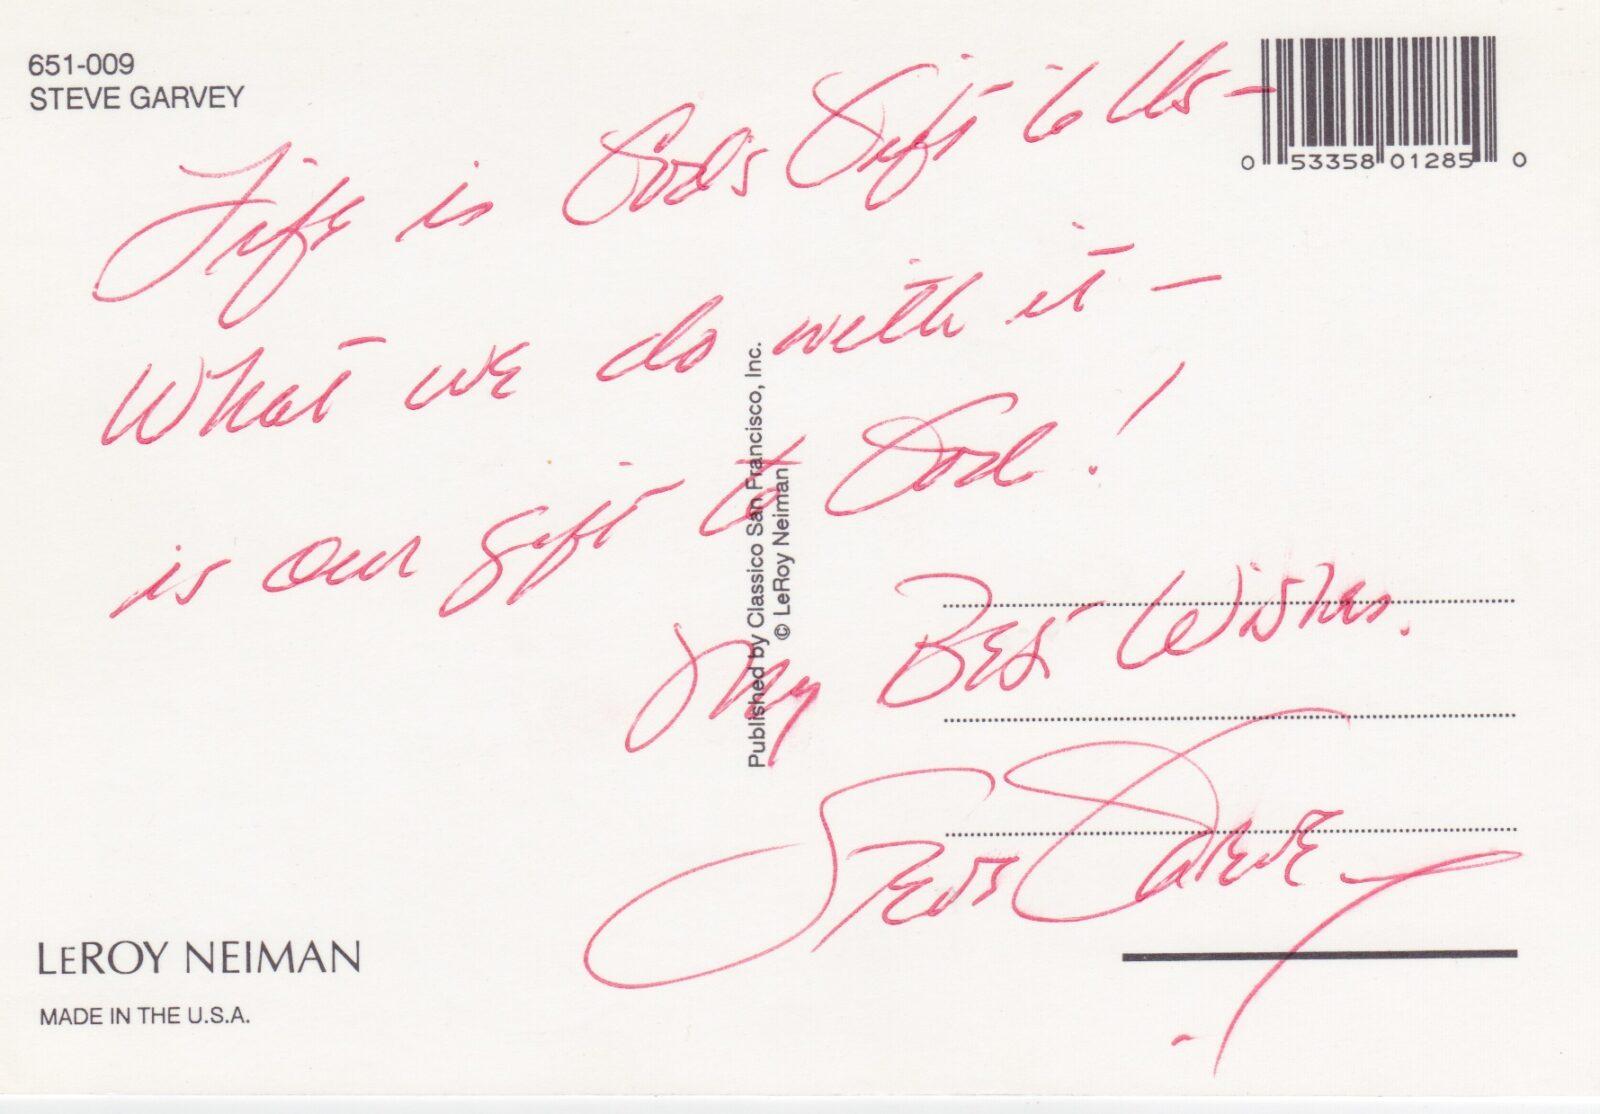 651-009
STEVE GARVEY
0 53358 01285 0
Life is God's Gift to Us-
What we do with it -
is our gift to God!
My Best Wishes.
Steve Garvey
Published by Classico San Francisco, Inc.
© LeRoy Neiman
LEROY NEIMAN
MADE IN THE U.S.A.